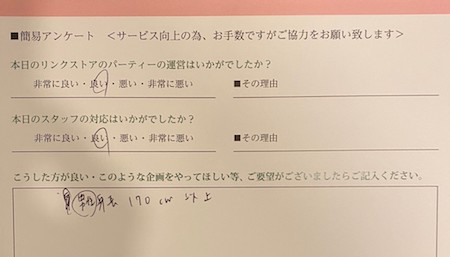 ■簡易アンケート ＜サービス向上の為、お手数ですがご協力をお願い致します＞
本日のリンクストアのパーティーの運営はいかがでしたか？
非常に良い・良い・悪い・非常に悪い ■その理由
本日のスタッフの対応はいかがでしたか？
非常に良い・良い・悪い・非常に悪い ■その理由
こうした方が良い・このような企画をやってほしい等、ご要望がございましたらご記入ください。
男性身長 170cm 以上